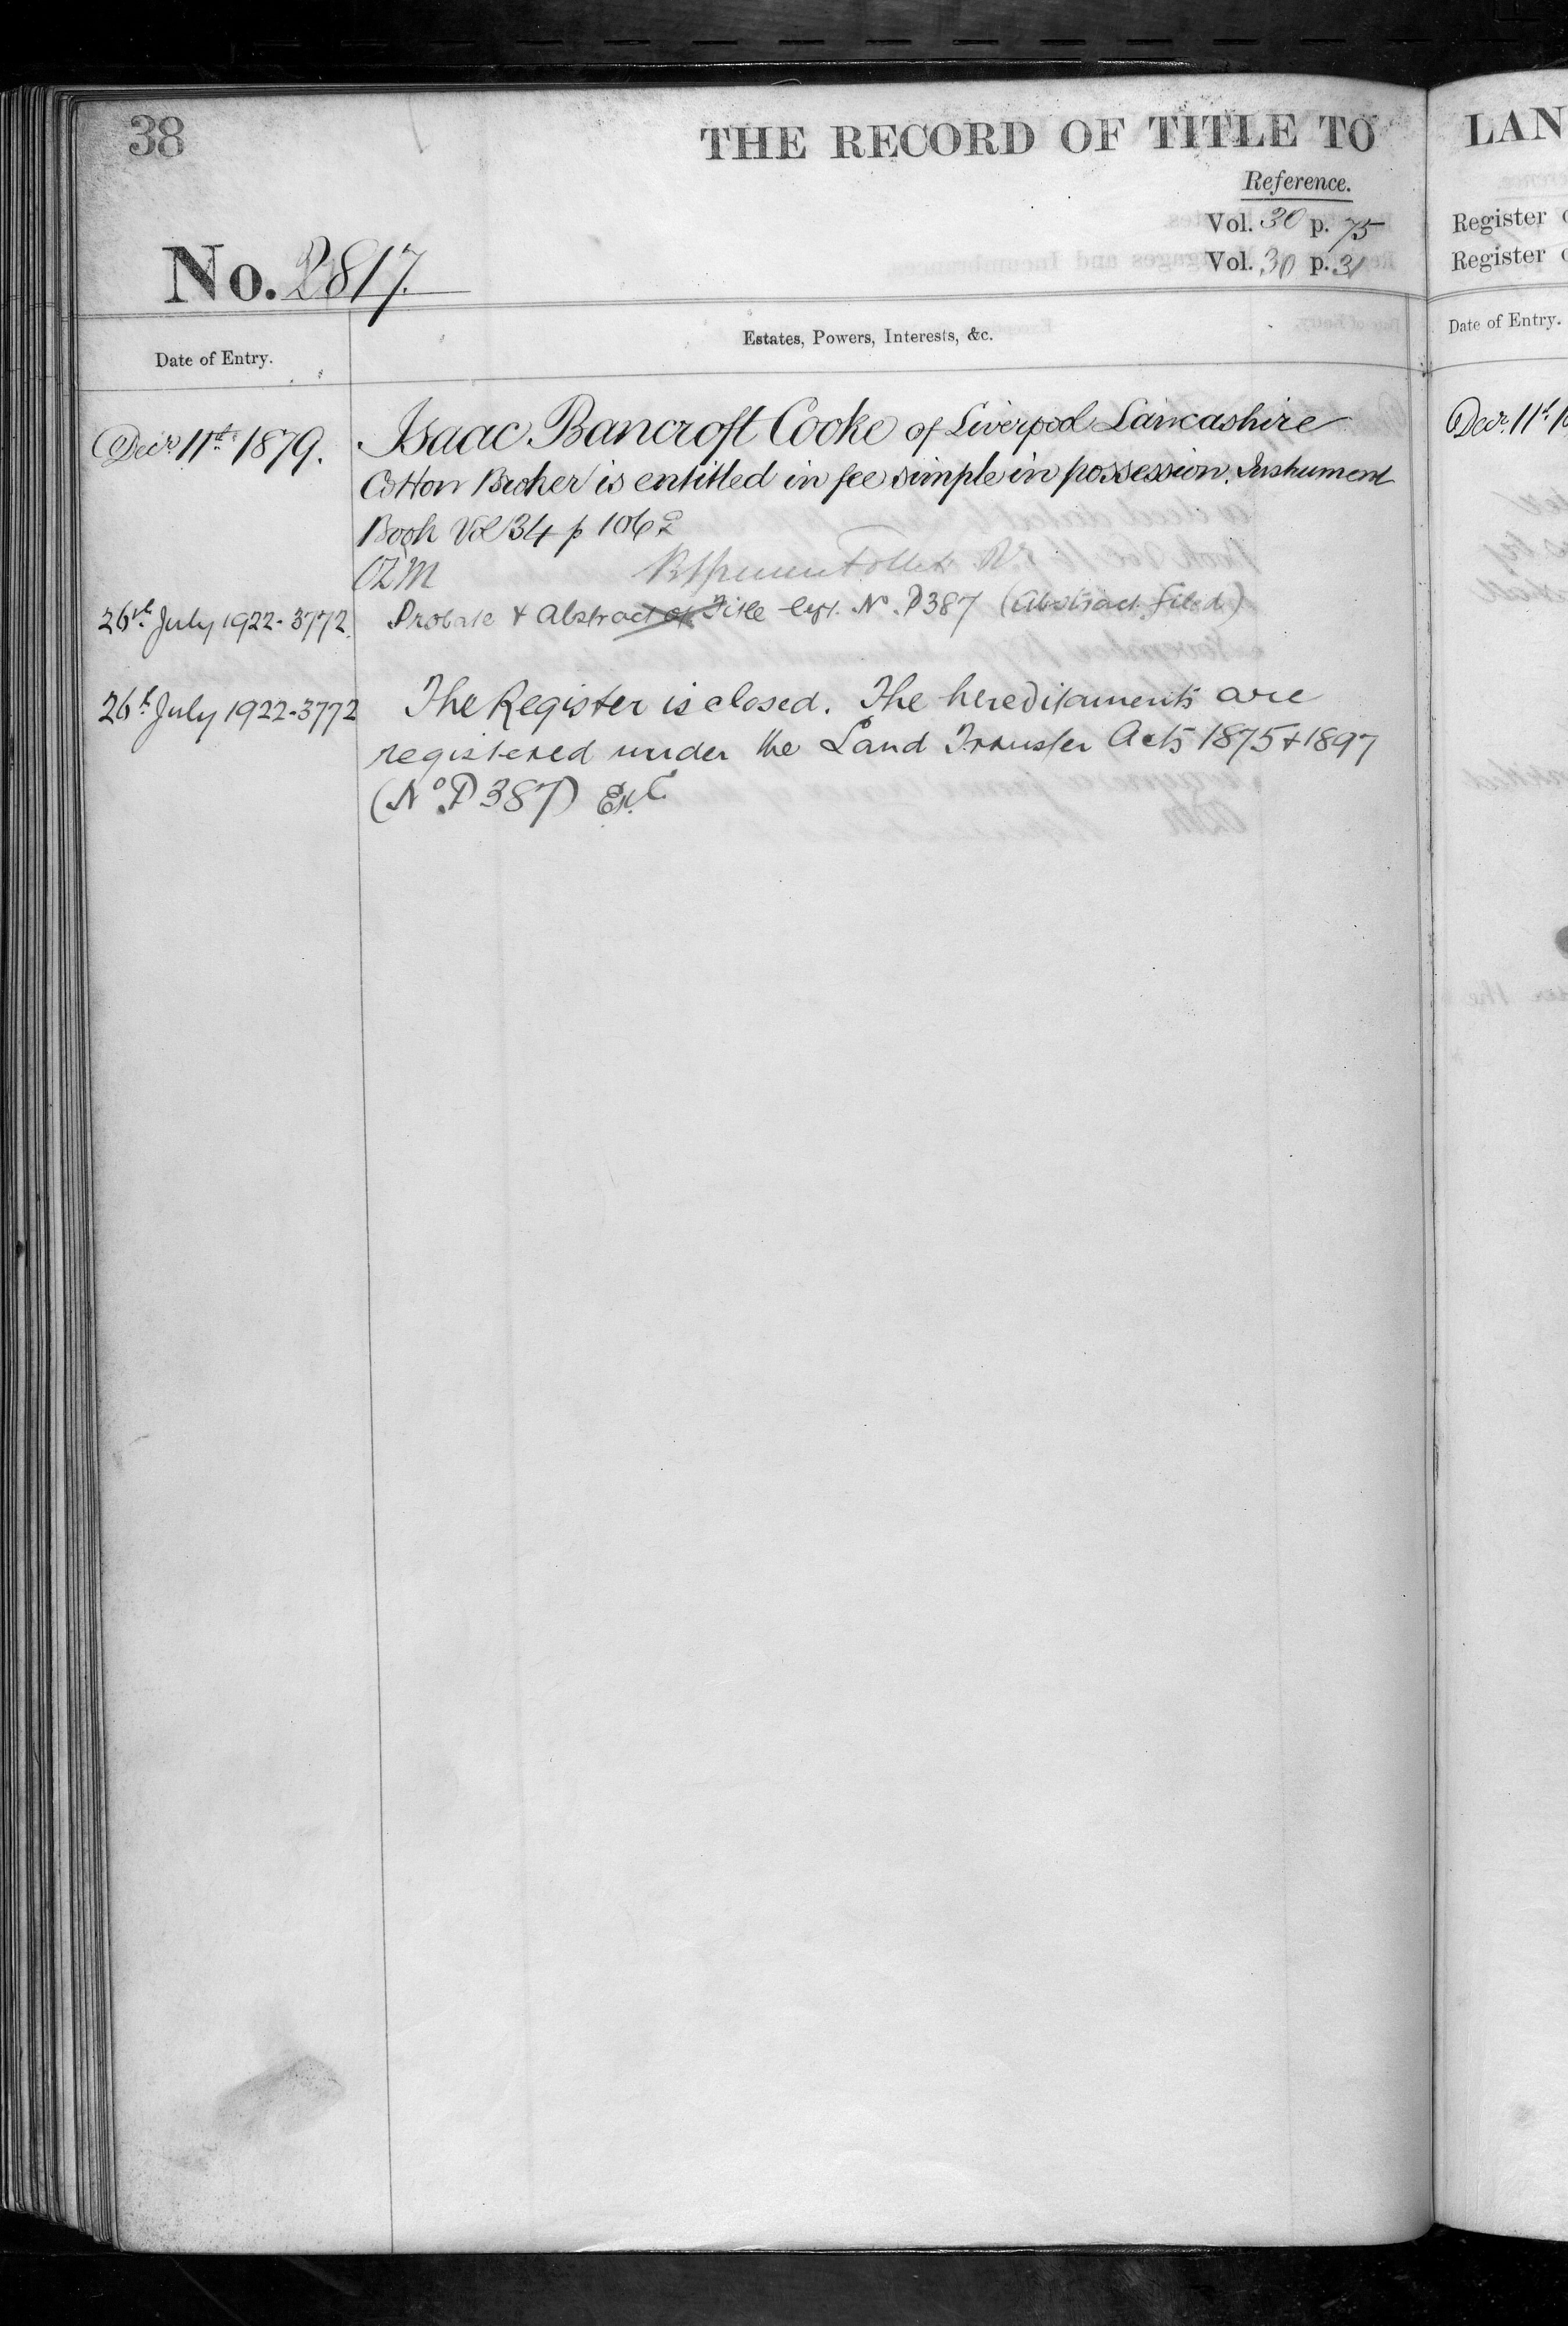 38
THE RECORD OF TITLE TO
Reference.
Vol. 30 p. 75
Vol. 30 p. 31
No. 2817.
Date of Entry.
Estates, Powers, Interests, &c.
Decr. 11th 1879.
Isaac Bancroft Cooke of Liverpool Lancashire
Cotton Broker is entitled in fee simple in possession. Instrument
Book Vol 34 p 1062
26th July 1922-3772
Probate & Abstract of Title No. P387 (Abstract filed)
26th July 1922-3772
The Register is closed. The hereditaments are
registered under the Land Transfer Acts 1875 & 1897
(No. P387)
LAN
Register
Register
Date of Entry.
Decr. 11th